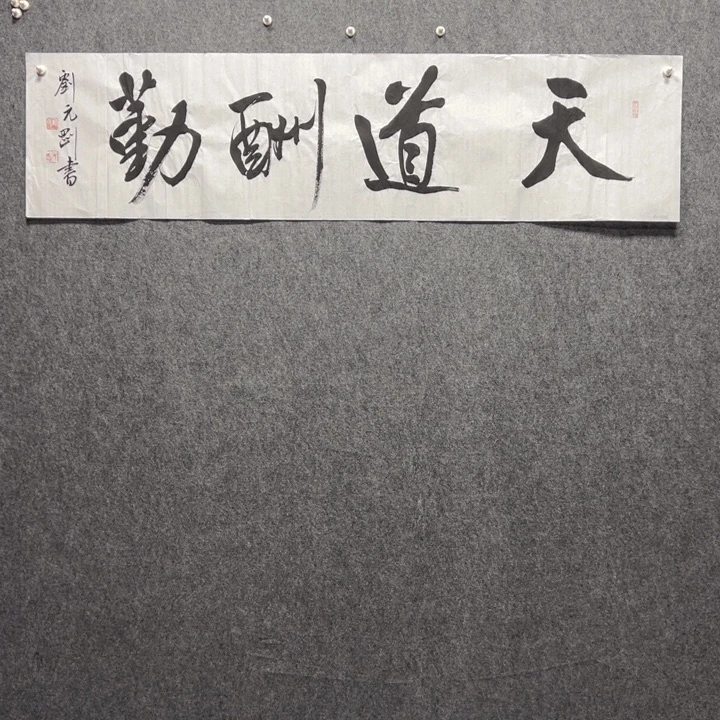 天道酬勤
劉元剛書